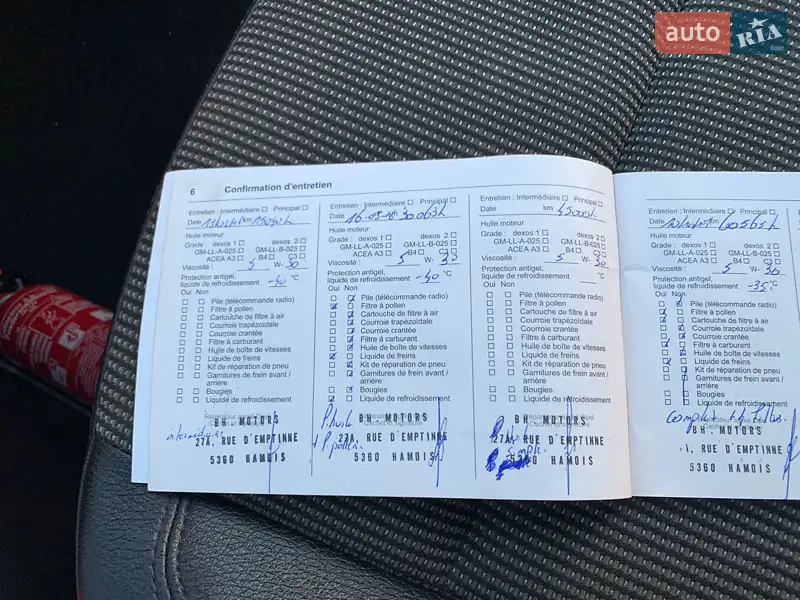 auto RIA.com
6 Confirmation d'entretien
Entretien : Intermédiaire Principal
Date km 15090
Huile moteur
Grade : dexos 1 dexos 2
GM-LL-A-025 GM-LL-B-025
ACEA A3 B4 C3
Viscosité : 5 W- 30
Protection antigel,
liquide de refroidissement -40 °C
Oui Non
Pile (télécommande radio)
Filtre à pollen
Cartouche de filtre à air
Courroie trapézoïdale
Courroie crantée
Filtre à carburant
Huile de boîte de vitesses
Liquide de freins
Kit de réparation de pneu
Garnitures de frein avant /
arrière
Bougies
Liquide de refroidissement
intermédiaire
BH MOTORS
27A, RUE D'EMPTINNE
5360 HAMOIS
Entretien : Intermédiaire Principal
Date 16-05-18 30063
Huile moteur
Grade : dexos 1 dexos 2
GM-LL-A-025 GM-LL-B-025
ACEA A3 B4 C3
Viscosité : 5 W- 30
Protection antigel,
liquide de refroidissement -40 °C
Oui Non
Pile (télécommande radio)
Filtre à pollen
Cartouche de filtre à air
Courroie trapézoïdale
Courroie crantée
Filtre à carburant
Huile de boîte de vitesses
Liquide de freins
Kit de réparation de pneu
Garnitures de frein avant /
arrière
Bougies
Liquide de refroidissement
BH MOTORS
27A, RUE D'EMPTINNE
5360 HAMOIS
Entretien : Intermédiaire Principal
Date km 45000
Huile moteur
Grade : dexos 1 dexos 2
GM-LL-A-025 GM-LL-B-025
ACEA A3 B4 C3
Viscosité : 5 W- 30
Protection antigel,
liquide de refroidissement °C
Oui Non
Pile (télécommande radio)
Filtre à pollen
Cartouche de filtre à air
Courroie trapézoïdale
Courroie crantée
Filtre à carburant
Huile de boîte de vitesses
Liquide de freins
Kit de réparation de pneu
Garnitures de frein avant /
arrière
Bougies
Liquide de refroidissement
BH MOTORS
27A, RUE D'EMPTINNE
5360 HAMOIS
Entretien : Intermédiaire Principal
Date km 60565
Huile moteur
Grade : dexos 1 dexos 2
GM-LL-A-025 GM-LL-B-025
ACEA A3 B4 C3
Viscosité : 5 W- 30
Protection antigel,
liquide de refroidissement -35 °C
Oui Non
Pile (télécommande radio)
Filtre à pollen
Cartouche de filtre à air
Courroie trapézoïdale
Courroie crantée
Filtre à carburant
Huile de boîte de vitesses
Liquide de freins
Kit de réparation de pneu
Garnitures de frein avant /
arrière
Bougies
Liquide de refroidissement
BH. MOTORS
RUE D'EMPTINNE
5360 HAMOIS